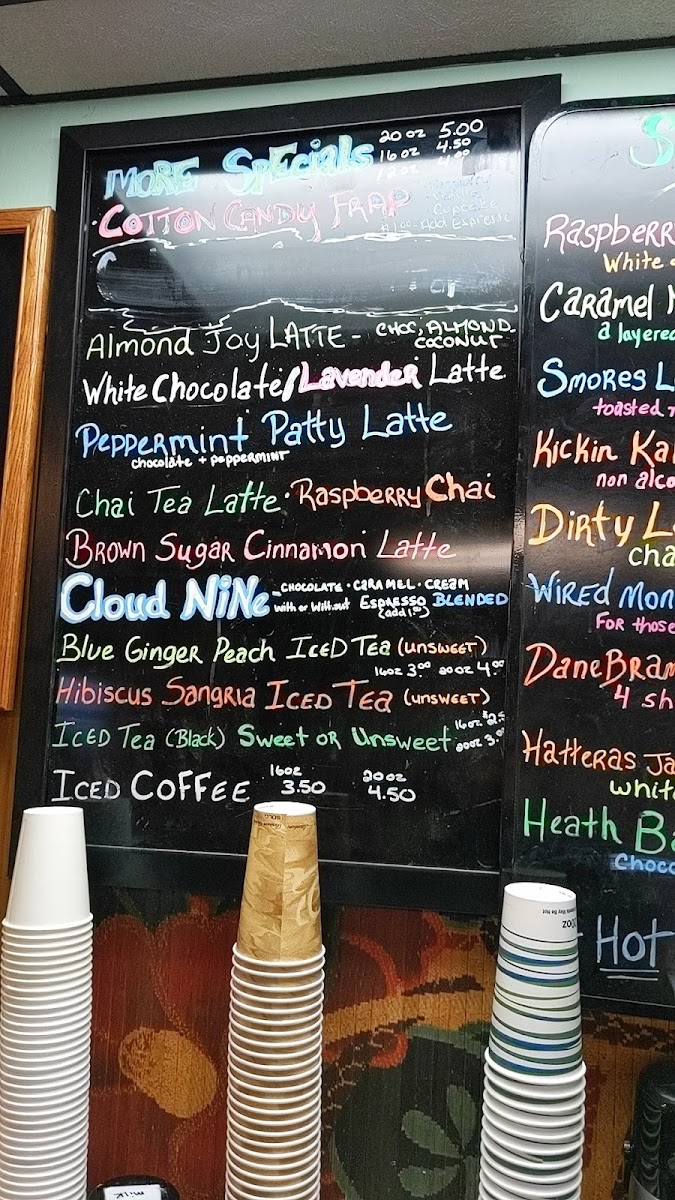 MORE SPECIALS
20 oz 5.00
16 oz 4.50
12 oz 4.00
COTTON CANDY FRAP
Cupcake
$1.00 - Add Espresso
Almond Joy LATTE - CHOC, ALMOND
COCONUT
White Chocolate/Lavender Latte
Peppermint Patty Latte
chocolate + peppermint
Chai Tea Latte · Raspberry Chai
Brown Sugar Cinnamon Latte
Cloud NiNe - CHOCOLATE · CARAMEL · CREAM
with or without ESPRESSO BLENDED
(add 1.00)
Blue Ginger Peach ICED Tea (unsweet)
16oz 3.00 20oz 4.00
Hibiscus Sangria ICED Tea (unsweet)
ICED Tea (Black) Sweet or Unsweet
16oz $2.5
20oz 3.00
ICED COFFEE
16oz 3.50
20oz 4.50
S
Raspberr
White
Caramel
a layere
Smores L
toasted
Kickin Ka
non alco
Dirty L
cha
Wired Mon
For those
DaneBram
4 sh
Hatteras Ja
whit
Heath Ba
Choc
Hot
milk